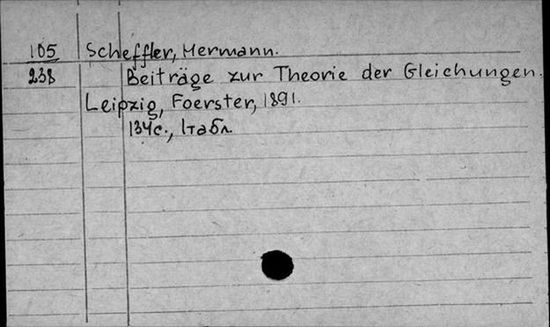 105 Scheffler, Hermann.
238 Beiträge zur Theorie der Gleichungen.
Leipzig, Foerster, 1891.
134с., 1табл.